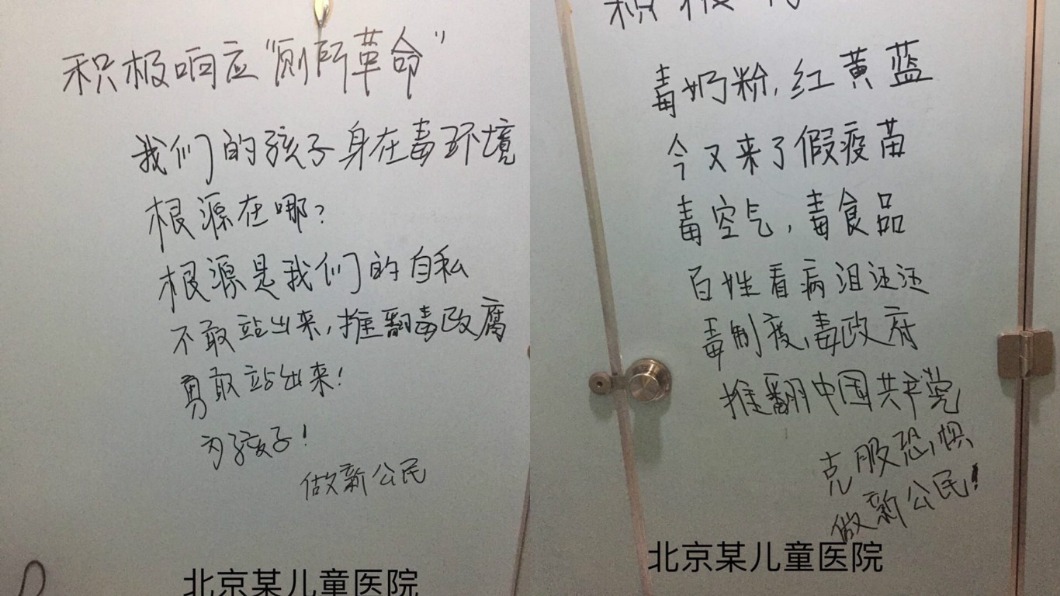 积极响应"厕所革命"
我们的孩子身在毒环境
根源在哪?
根源是我们的自私
不敢站出来,推翻毒政腐
勇敢站出来!
为孩子!
做新公民
北京某儿童医院
积极
毒奶粉,红黄蓝
今又来了假疫苗
毒空气,毒食品
百姓看病泪还还
毒制度,毒政府
推翻中国共产党
克服恐惧
做新公民!
北京某儿童医院